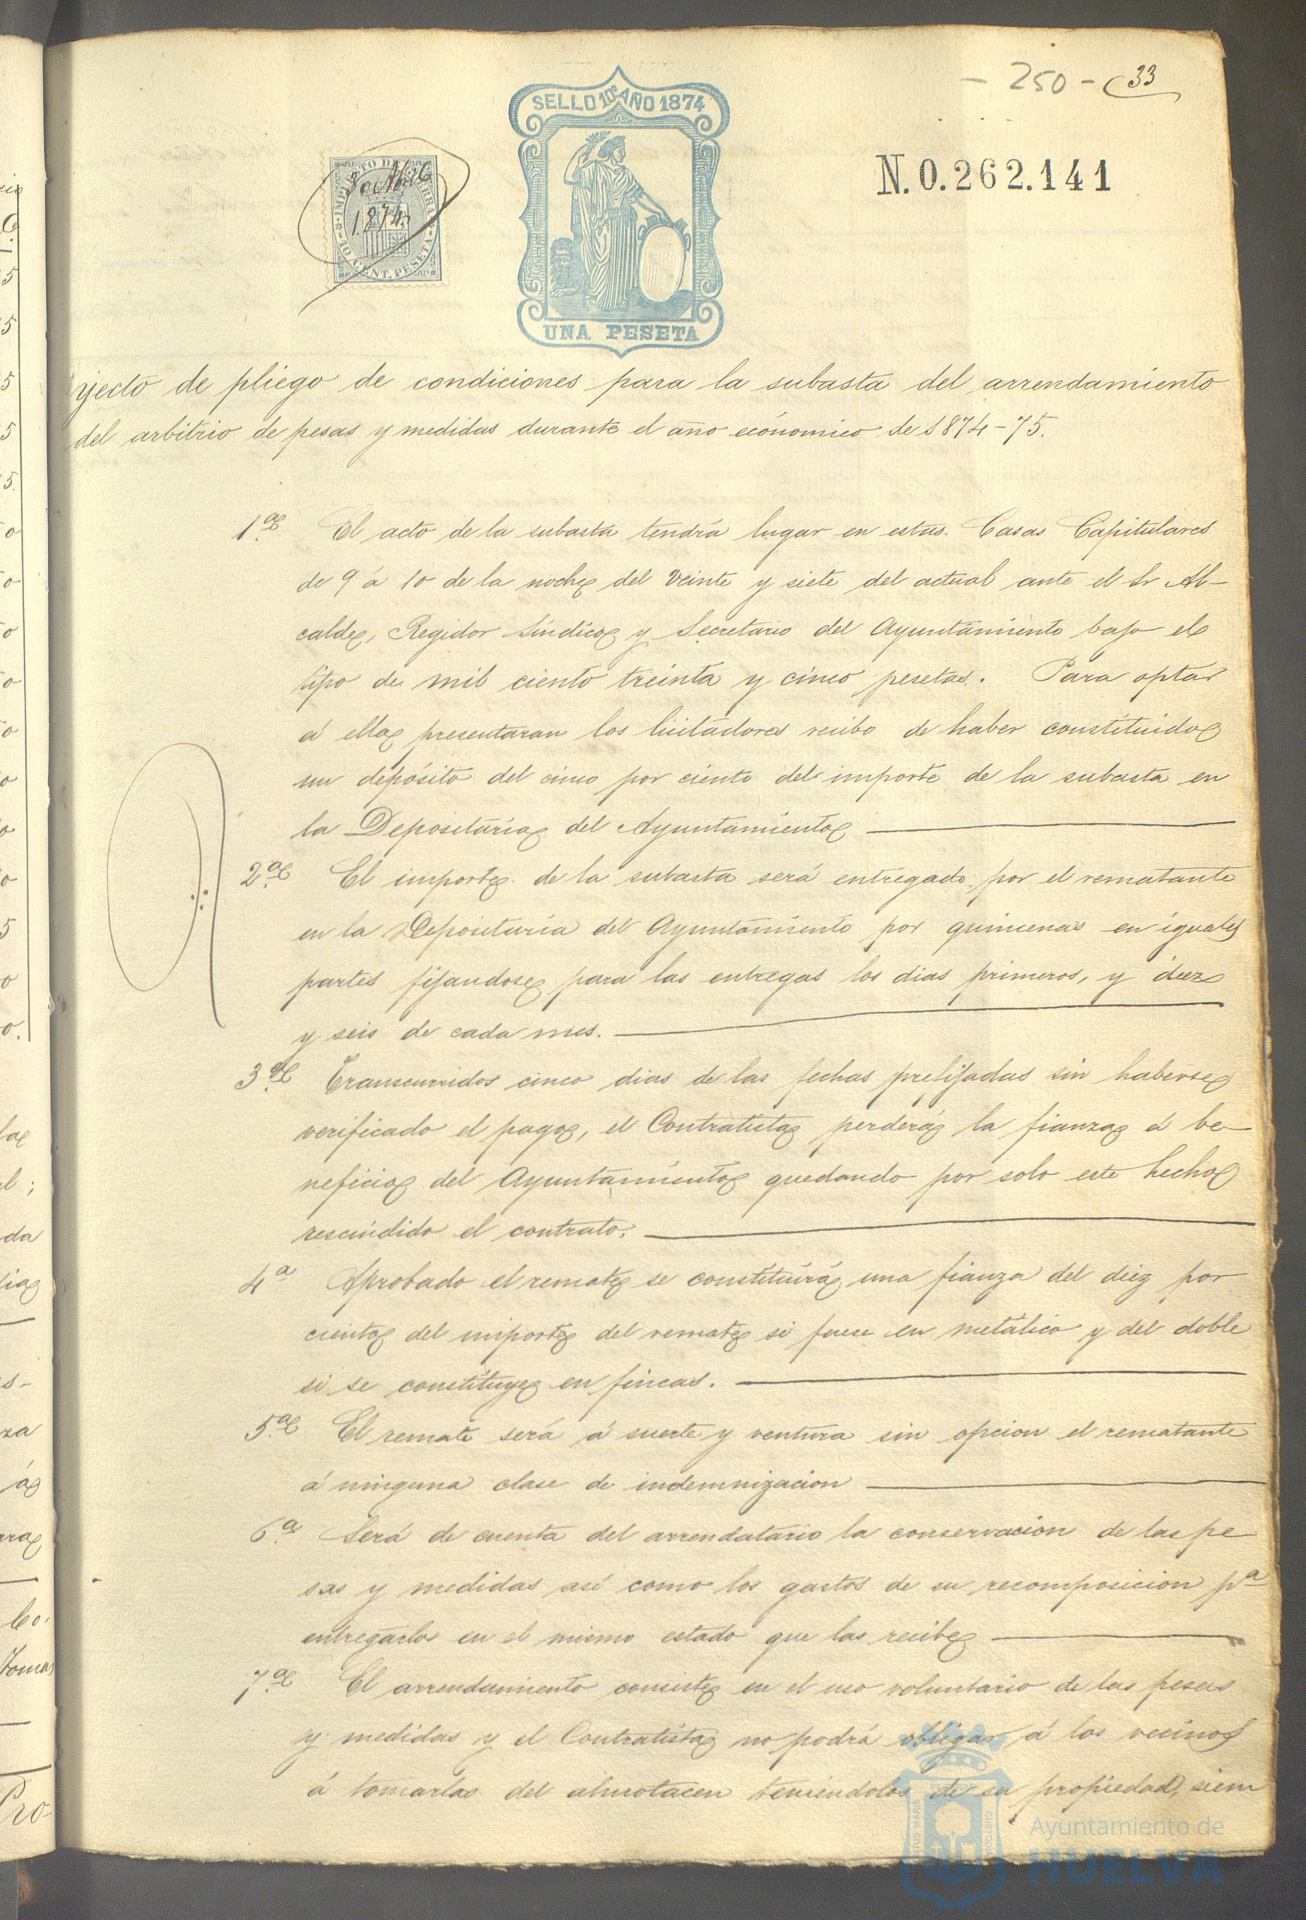 - 250 - 33
SELLO 10º AÑO 1874
N. 0.262.141
IMPUESTO DE GUERRA
de Abril
1874
10 CENT. PESETA
UNA PESETA
yecto de pliego de condiciones para la subasta del arrendamiento
del arbitrio de pesas y medidas durante el año económico de 1874-75.
1.ª El acto de la subasta tendrá lugar en estas Casas Capitulares
de 9 á 10 de la noche del veinte y siete del actual ante el Sr Al-
calde, Regidor Síndico y Secretario del Ayuntamiento bajo el
tipo de mil ciento treinta y cinco pesetas. Para optar
á ella presentaran los licitadores recibo de haber constituido
un depósito del cinco por ciento del importe de la subasta en
la Depositaria del Ayuntamiento
2.ª El importe de la subasta será entregado por el rematante
en la Depositaria del Ayuntamiento por quincenas en iguales
partes fijandose para las entregas los dias primeros, y diez
y seis de cada mes.
3.ª Transcurridos cinco dias de las fechas prefijadas sin haberse
verificado el pago, el Contratista perderá la fianza á be-
neficio del Ayuntamiento quedando por solo este hecho
rescindido el contrato.
4.ª Aprobado el remate se constituirá una fianza del diez por
ciento del importe del remate si fuese en metálico y del doble
si se constituye en fincas.
5.ª El remate será á suerte y ventura sin opcion el rematante
á ninguna clase de indemnizacion
6.ª Será de cuenta del arrendatario la conservacion de las pe-
sas y medidas así como los gastos de su recomposicion pª
entregarlos en el mismo estado que las recibe
7.ª El arrendamiento consiste en el uso voluntario de las pesas
y medidas y el Contratista no podrá obligar á los vecinos
á tomarlas del almotacen teniéndolos de su propiedad, siem
Ayuntamiento de
HUELVA